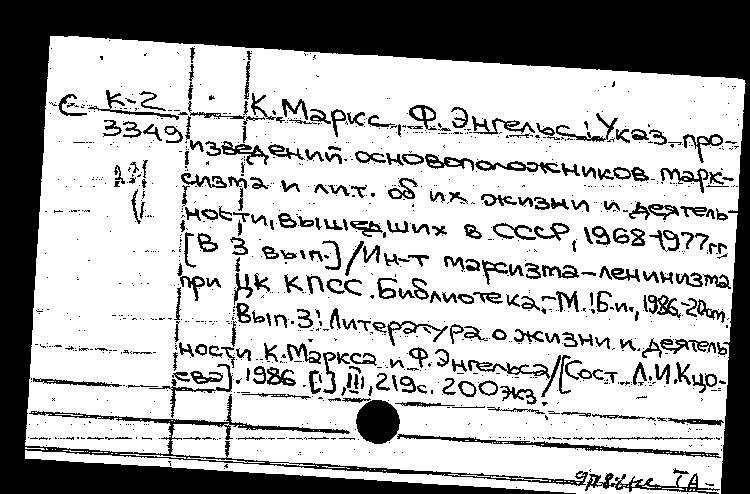 С К-2
3349
К. Маркс, Ф. Энгельс: Указ. про-
изведений основоположников марк-
сизма и лит. об их жизни и деятель-
ности, вышедших в СССР, 1968-1977гг.
[В 3 вып.]/Ин-т марсизма-ленинизма
при ЦК КПСС. Библиотека.-М.: Б.и., 1986-20см.
Вып.3: Литература о жизни и деятель
ности К. Маркса и Ф. Энгельса/[Сост Л.И. Кцо-
ева]. 1986. [1], III, 219с. 200экз.
ТА-